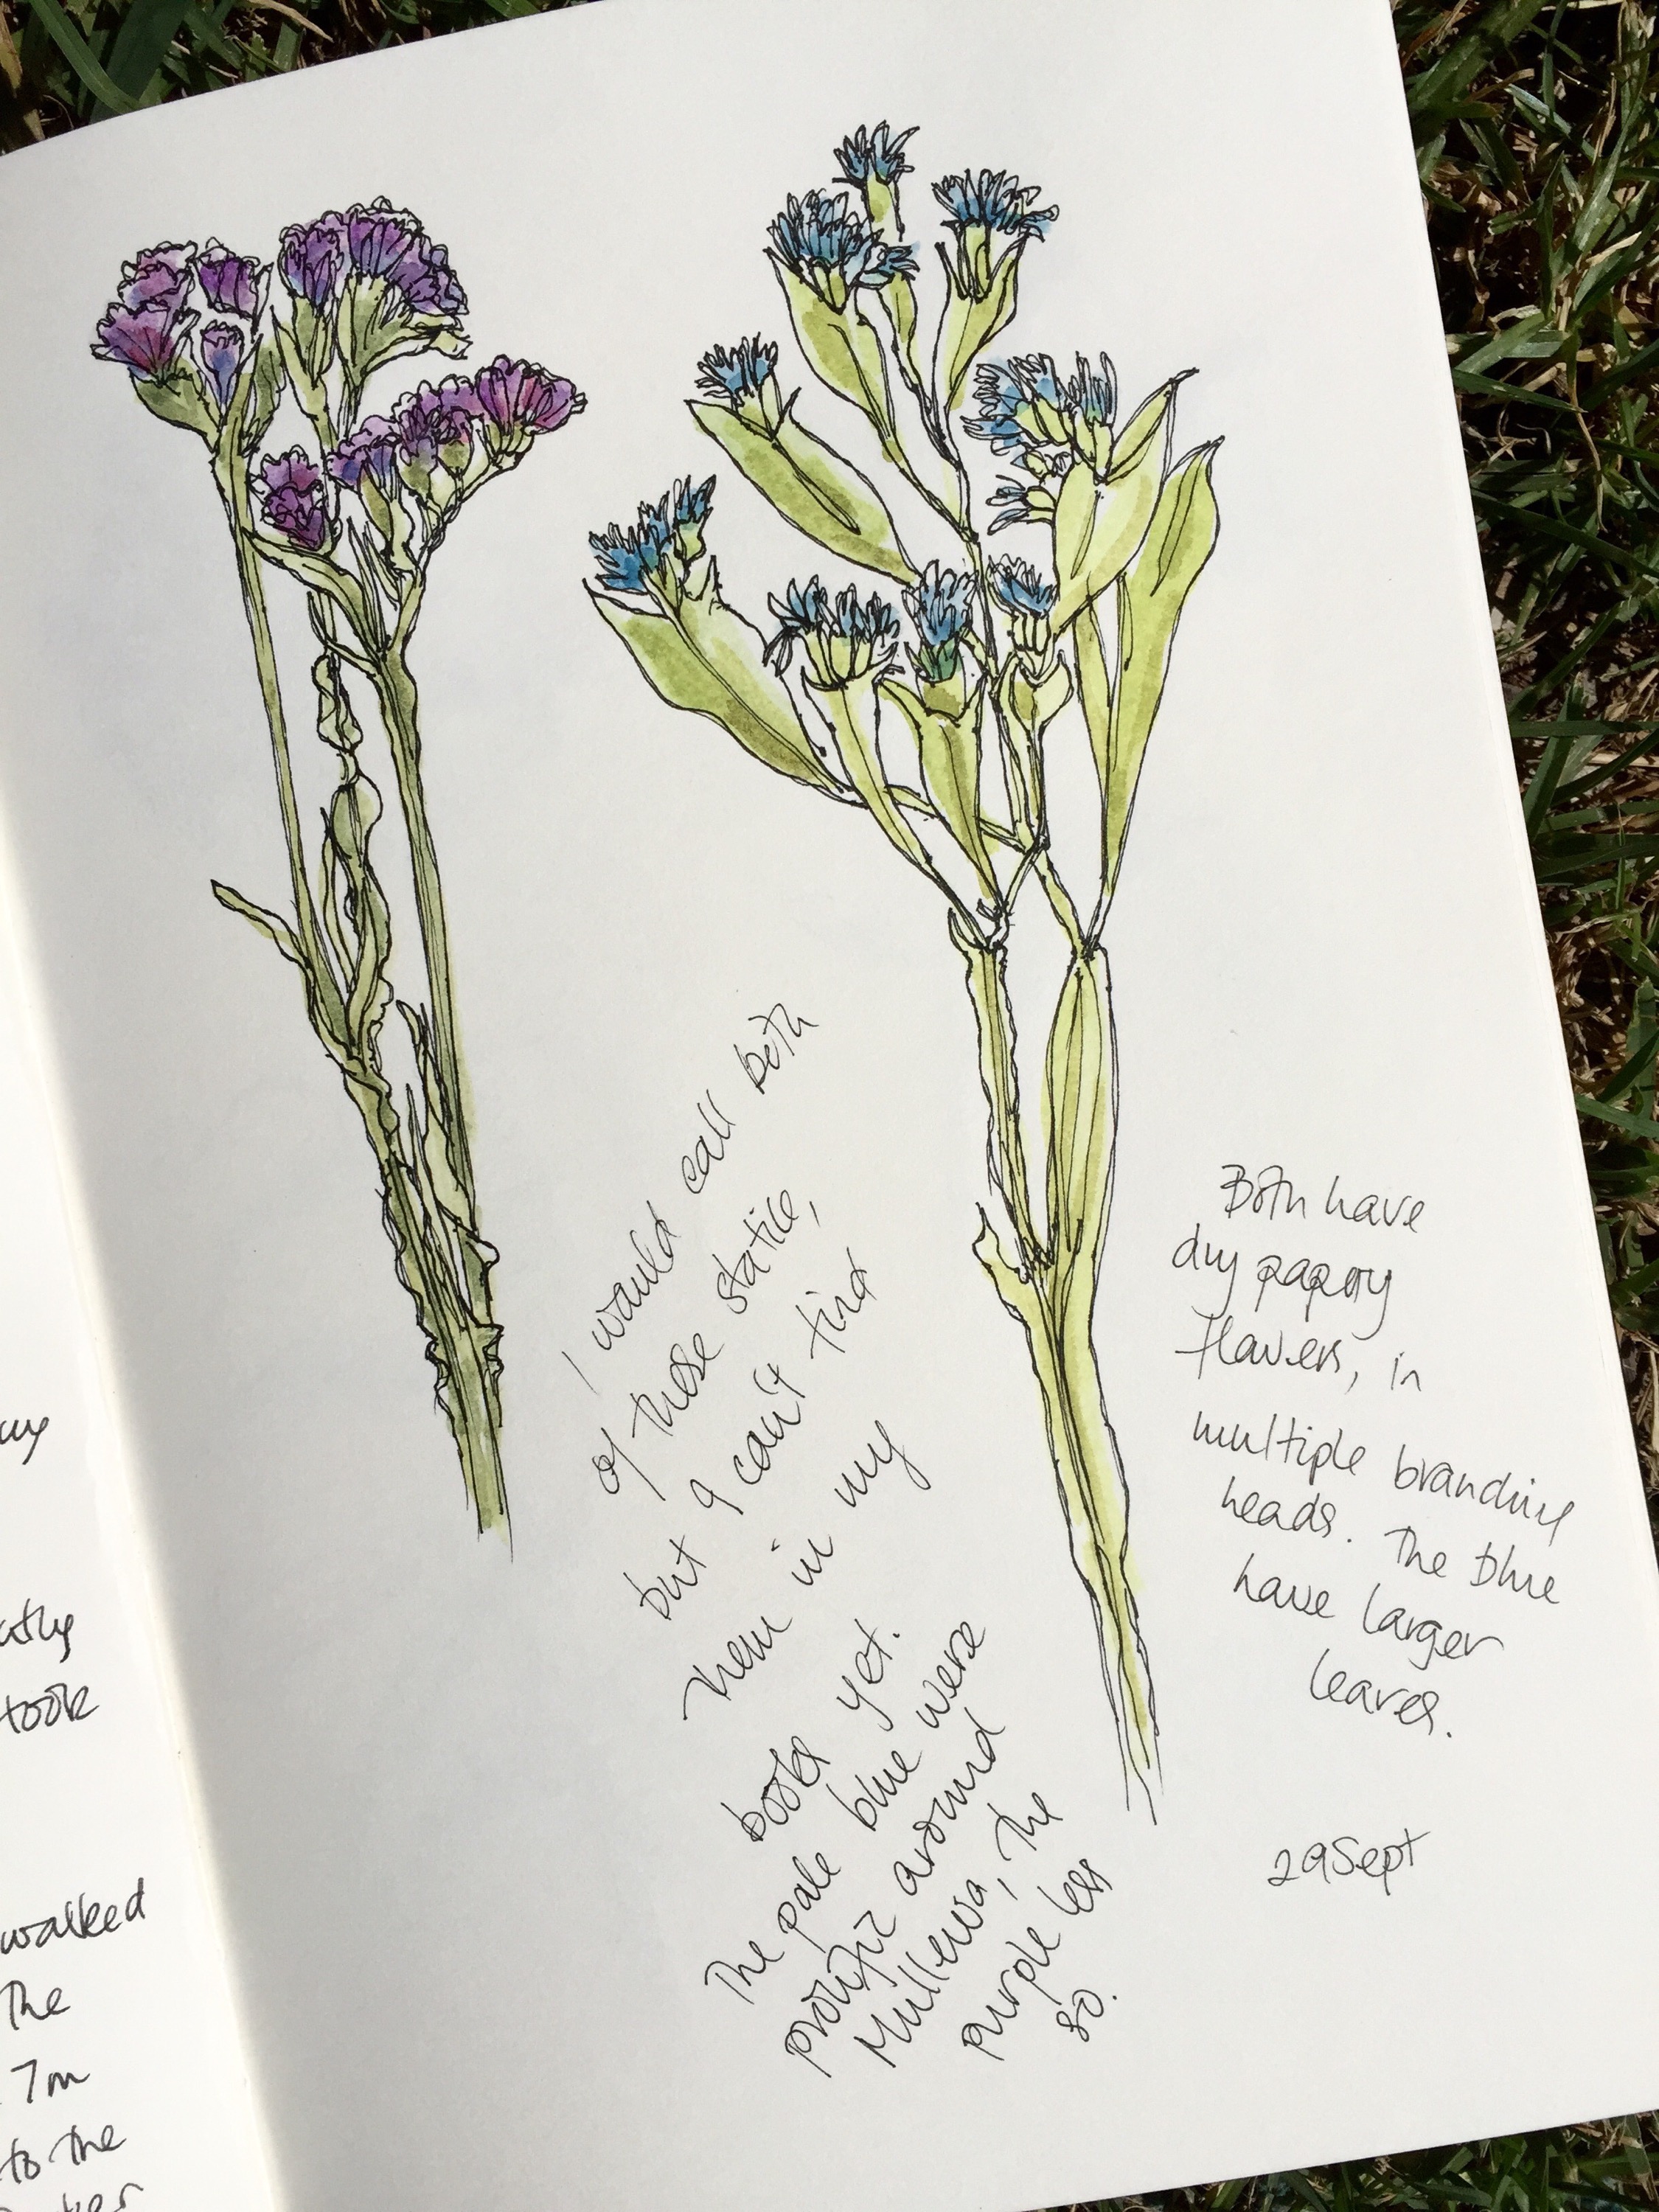 my
took
walked
the
7m
to the
I would call both
of these statice,
but I can't find
them in my
books yet.
The pale blue were
prolific around
Mullewa, the
purple less
so.
Both have
dry papery
flowers, in
multiple branching
heads. The blue
have larger
leaves.
29 Sept